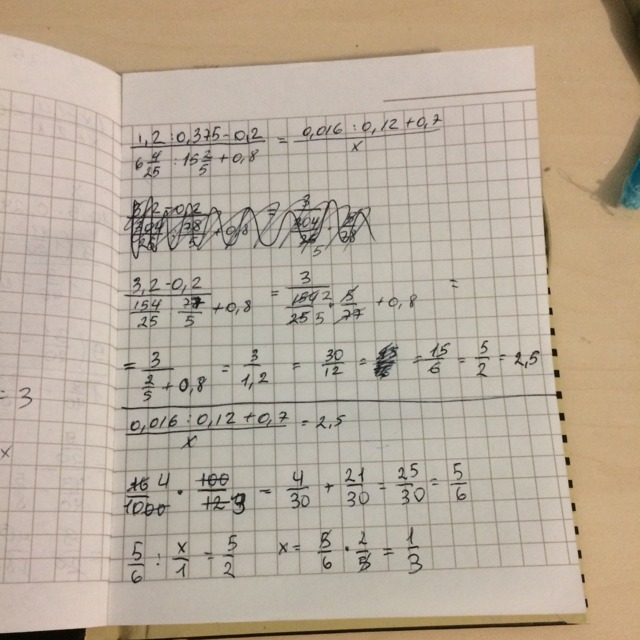 = 3
x
1,2 : 0,375 - 0,2 / 6 4/25 : 15 2/5 + 0,8 = 0,016 : 0,12 + 0,7 / x
3,2 - 0,2 / 154/25 · 77/5 + 0,8 = 3 / 154 2/25 5 · 5/77 + 0,8 =
= 3 / 2/5 + 0,8 = 3/1,2 = 30/12 = 15/6 = 5/2 = 2,5
0,016 : 0,12 + 0,7 / x = 2,5
16 4/1000 · 100/12 3 = 4/30 + 21/30 = 25/30 = 5/6
5/6 : x/1 = 5/2 x = 5/6 · 2/5 = 1/3